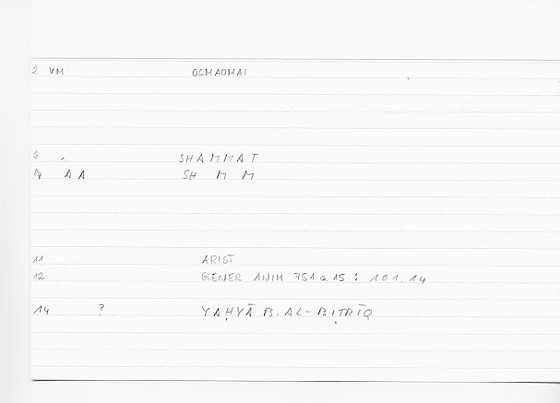 2 VM OSMADMAI
6 . SHAMMAT
7 A A SH M M
11 ARIST
12 GENER ANIM 751 a 15 : 101, 14
14 ? YAḤYĀ B. AL-BIṬRĪQ